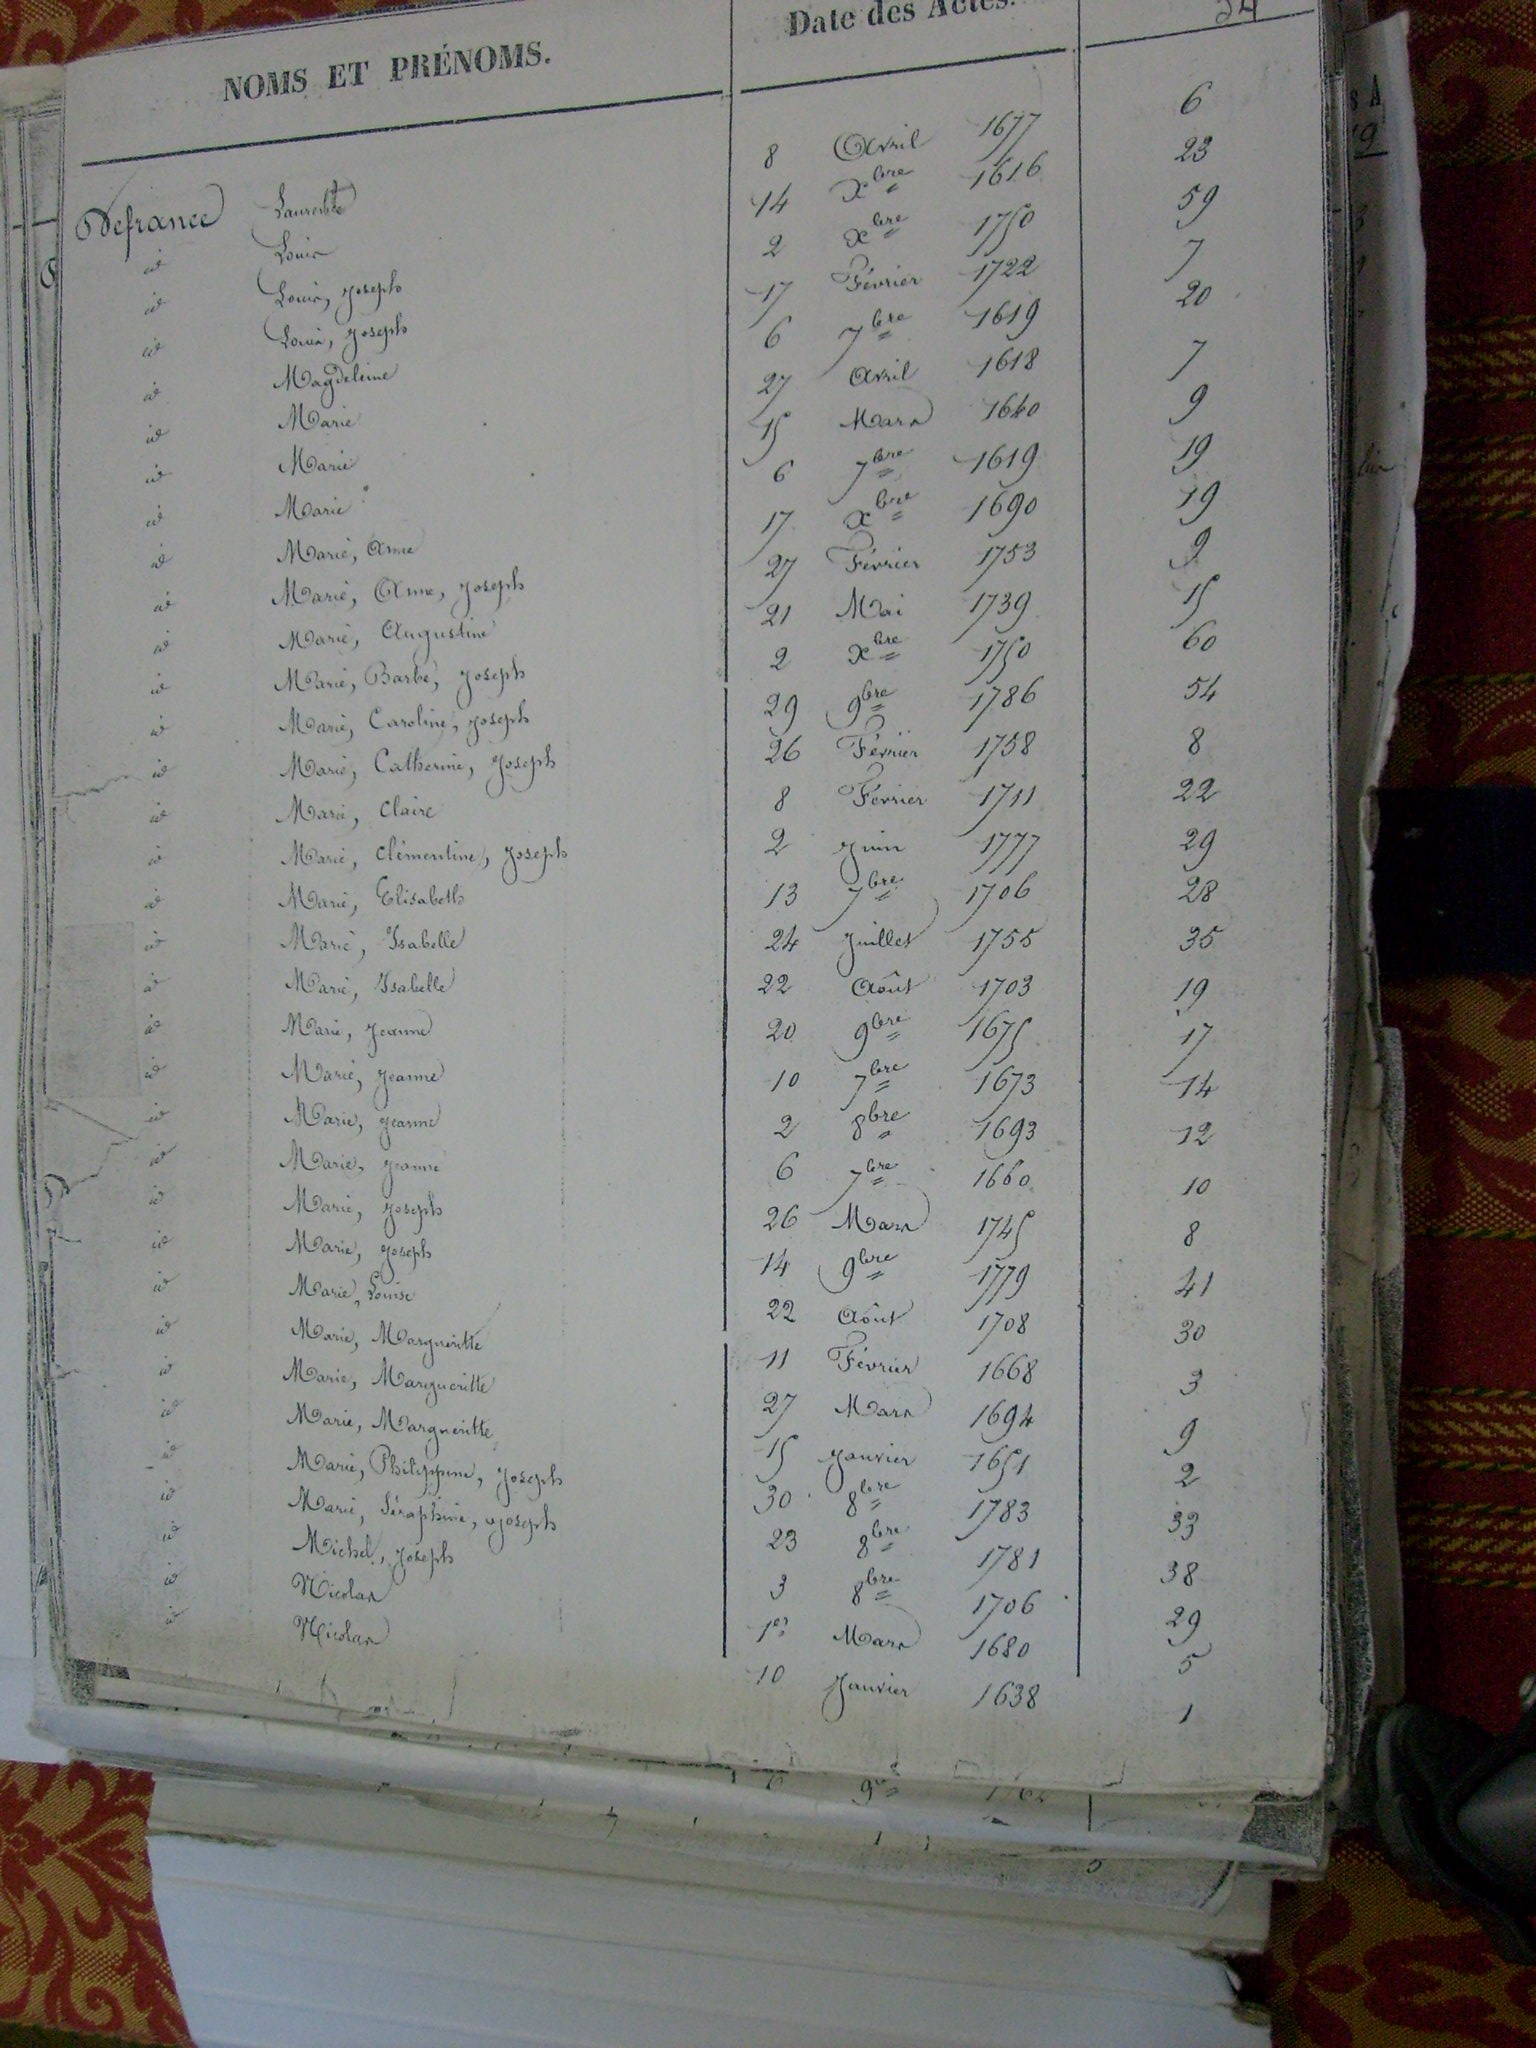 NOMS ET PRÉNOMS. Date des Actes. 34
Defrance Laurentte 8 Avril 1677 6
id Louis 14 Xbre 1616 23
id Louis, Joseph 2 Xbre 1750 59
id Louis, Joseph 17 Février 1722 7
id Magdeleine 6 7bre 1619 20
id Marie 27 Avril 1618 7
id Marie 15 Mars 1640 9
id Marie 6 7bre 1619 19
id Marie, Anne 17 Xbre 1690 19
id Marie, Anne, Joseph 27 Février 1753 9
id Marie, Augustine 21 Mai 1739 15
id Marie, Barbe, Joseph 2 Xbre 1750 60
id Marie, Caroline, Joseph 29 9bre 1786 54
id Marie, Catherine, Joseph 26 Février 1758 8
id Marie, Claire 8 Février 1711 22
id Marie, Clémentine, Joseph 2 Juin 1777 29
id Marie, Elisabeth 13 7bre 1706 28
id Marie, Isabelle 24 Juillet 1755 35
id Marie, Isabelle 22 Août 1703 19
id Marie, Jeanne 20 9bre 1675 17
id Marie, Jeanne 10 7bre 1673 14
id Marie, Jeanne 2 8bre 1693 12
id Marie, Jeanne 6 7bre 1660 10
id Marie, Joseph 26 Mars 1745 8
id Marie, Joseph 14 9bre 1779 41
id Marie, Louise 22 Août 1708 30
id Marie, Margueritte 11 Février 1668 3
id Marie, Margueritte 27 Mars 1694 9
id Marie, Margueritte 15 Janvier 1651 2
id Marie, Philippine, Joseph 30 8bre 1783 33
id Marie, Séraphine, Joseph 23 8bre 1781 38
id Michel, Joseph 3 8bre 1706 29
id Nicolas 1er Mars 1680 5
id Nicolas 10 Janvier 1638 1